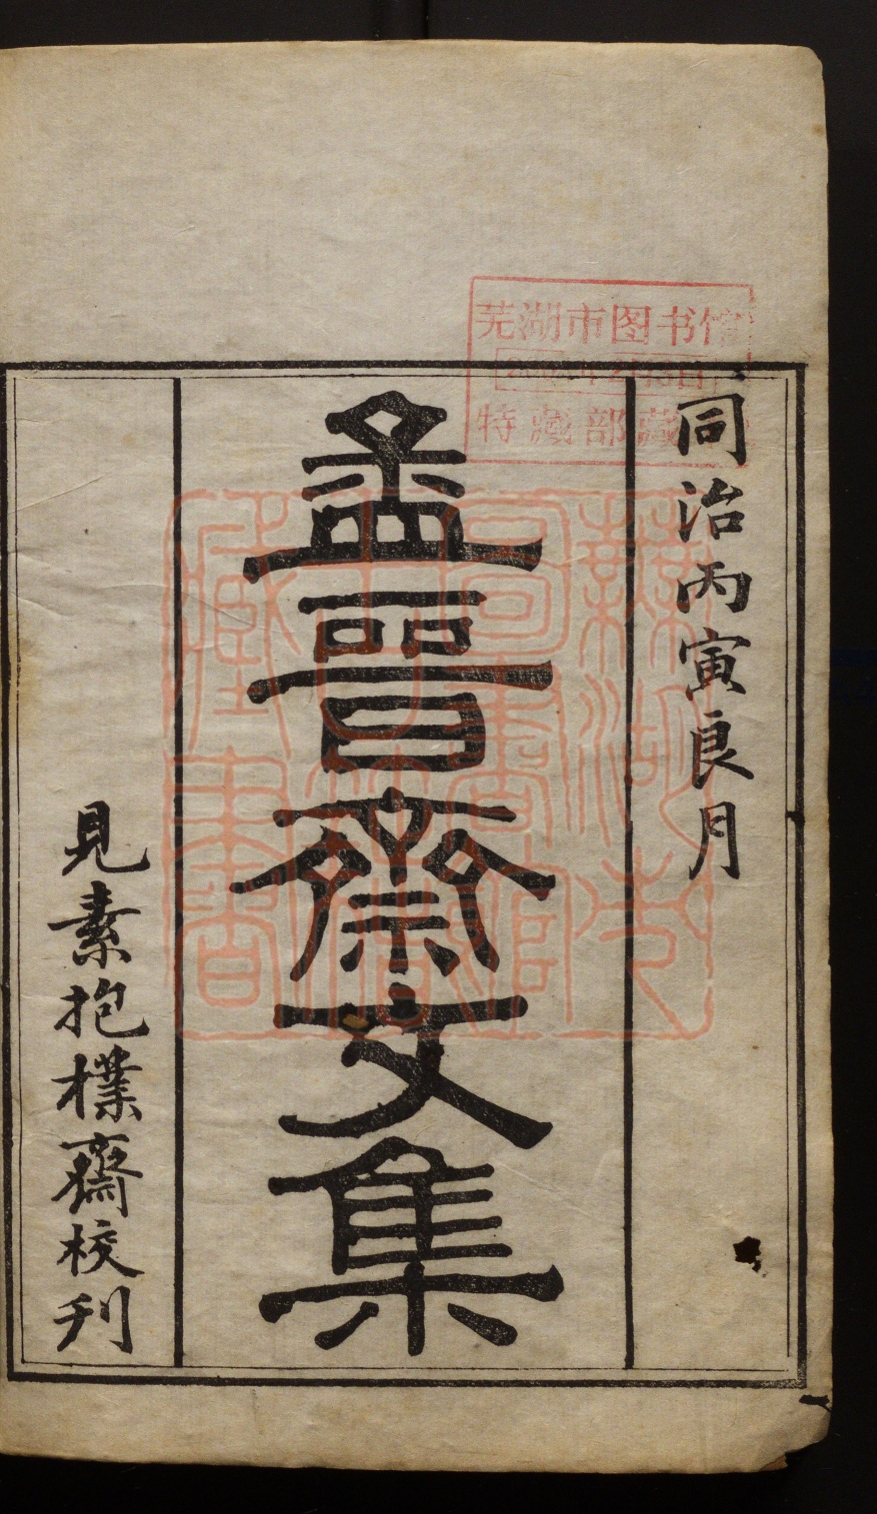 同治丙寅良月
孟晉齋文集
見素抱樸齋校刊
芜湖市图书馆
特藏部藏